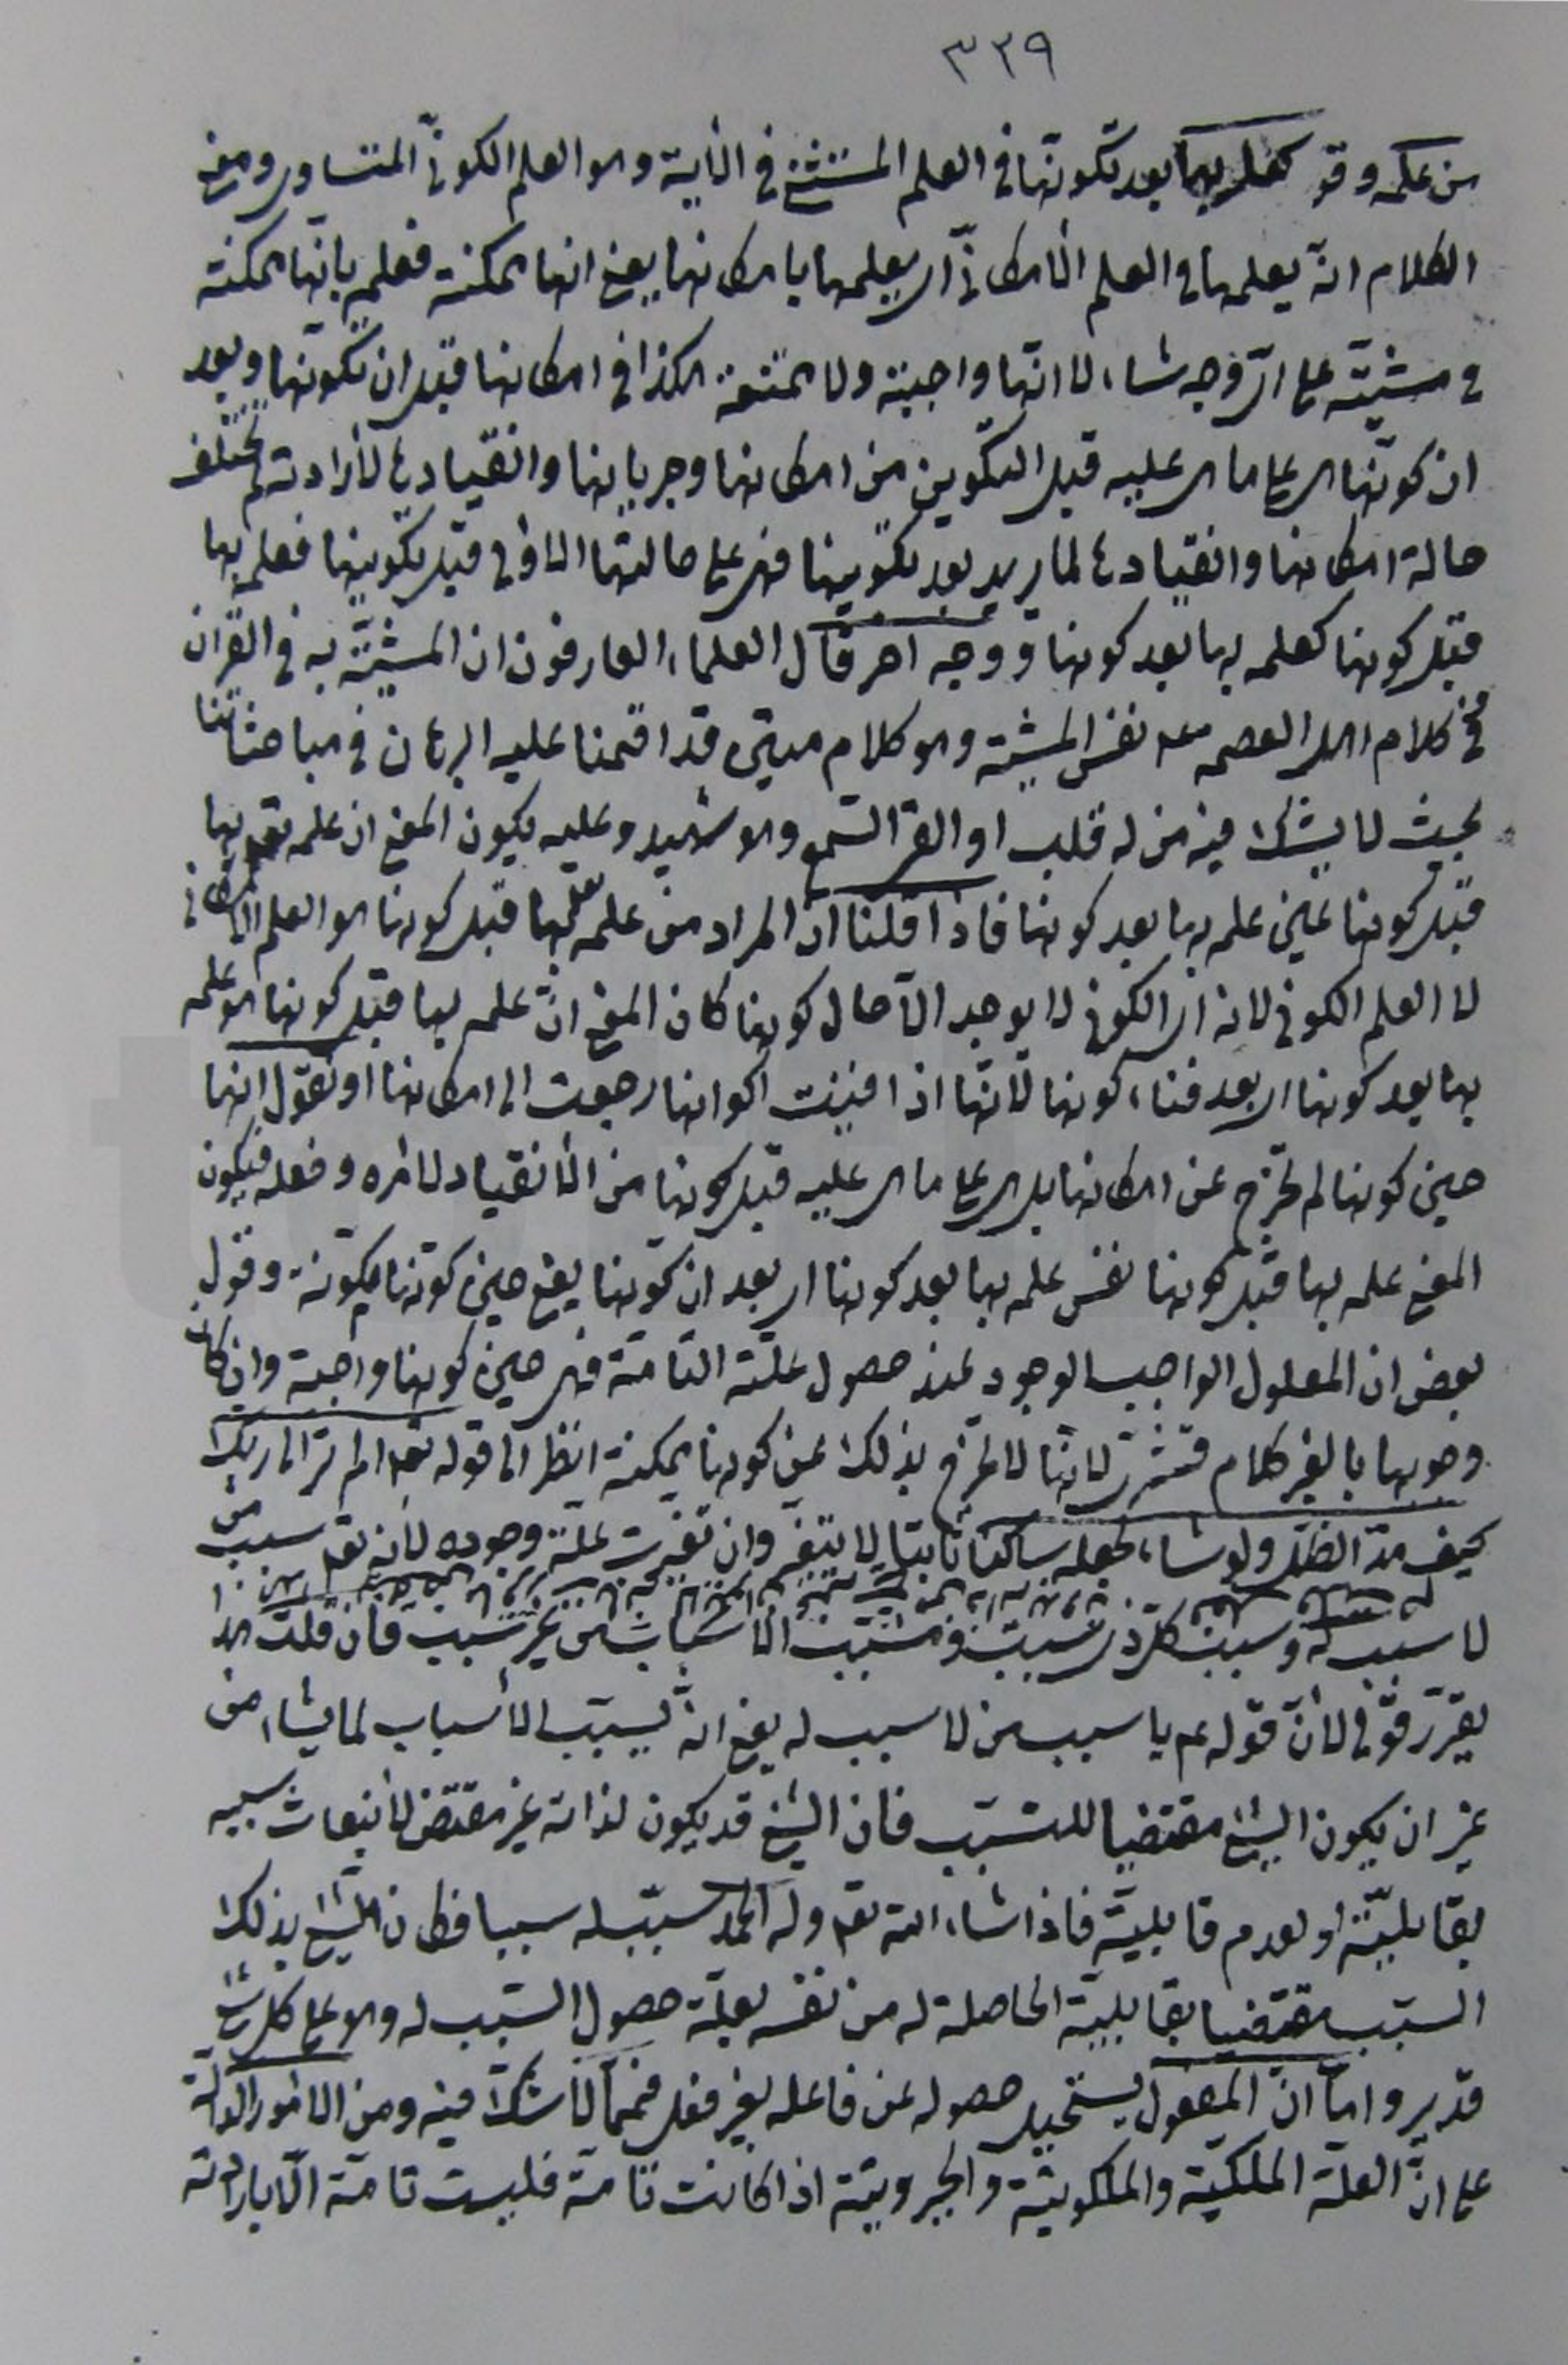 ٣٣٩
من علمه وقو كعلمه بها بعد تكونها في العلم المستثنى في الآية وهو العلم الكوني المتساوى ومعنى
الكلام انّه يعلمها في العلم الامكانيّ اى يعلمها بامكانها يعنى انها ممكنة فعلمه بانّها ممكنة
في مشيّته على اىّ وجه شاء لا انّها واجبة ولا ممتنعة هكذا في امكانها قبل ان تكونها وبعد
ان كونّها هى على ما هى عليه قبل التكوين من امكانها وجريانها وانقيادها لأرادته لم تختلف
حالة امكانها وانقيادها لما يريد بعد تكوينها فهى على حالتها الأولى قبل تكوينها فعلمه بها
قبل كونها كعلمه بها بعد كونها ووجه اخر قال العلماء العارفون ان المشيّة به في القرآن
في كلام اهل العصمة نفس المشيّة وهو كلام متين قد اقمنا عليه البرهان في مباحثاتنا
بحيث لا يشك فيه من له قلب او القى السّمع وهو شهيد وعليه يكون المعنى ان علمه تعالى بها
قبل كونها عين علمه بها بعد كونها فاذا قلنا انّ المراد من علمه بها قبل كونها هو العلم الامكانى
لا العلم الكونى لانه اى الكونى لا يوجد الّا حال كونها كان المعنى انّ علمه بها قبل كونها هو علمه
بها بعد كونها اى بعد فناء كونها لأنّها اذا فنيت اكوانها رجعت الى امكانها او نقول انها
حين كونها لم تخرج عن امكانها بل هى على ما هى عليه قبل كونها من الأنقياد لامره وفعله فيكون
المعنى علمه بها قبل كونها نفس علمه بها بعد كونها اى بعد ان كونها يعنى حين كونها مكونة وقول
بعض ان المعلول الواجب الوجود عند حصول علّته التامّة فهى حين كونها واجبة وان كان
وجوبها بالغير كلام قشرى لانّها لا تخرج بذلك عن كونها ممكنة انظر الى قوله تعالى الم تر الى ربك
كيف مدّ الظلّ ولو شاء لجعله ساكنا ثابتا لا يتغيّر وان تغيرت علّة وجوده لأنه تعالى سبب من
لا سبب له وسبب كلّ ذى سبب ومسبّب الأسباب من غير سبب فان قلت هذا
يقرّر قولى لأنّ قوله عم يا سبب من لا سبب له يعنى انّه يسبّب الأسباب لما يشاء من
غير ان يكون الشئ مقتضيا للتسبب فان الشئ قد يكون لذاته غير مقتض لأنبعاث سببه
بقابليّته او لعدم قابليته فاذا شاء الله تعالى وله الحمد سبّب له سببا فكان الشئ بذلك
السبب مقتضيا بقابليّته الحاصلة له من نفسه بعلّة حصول السّبب له وهو على كل شئ
قدير واما انّ المفعول يستحيل حصوله عن فاعله بغير فعل فممّا لا شكّ فيه ومن الأمور الدالّة
على انّ العلّة الملكيّة والملكوتيّة والجبروتيّة اذا كانت تامّة فليست تامّة الّا بارادته